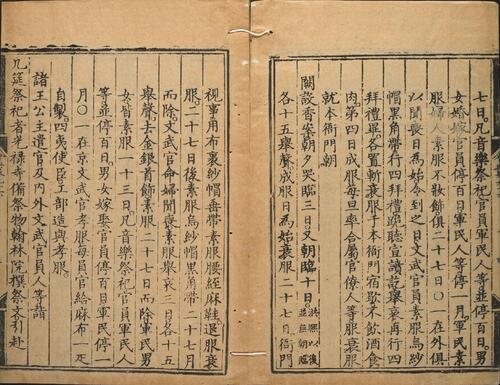 七日凡音樂祭祀官員軍民人等並停百日男
女婚嫁官員停百日軍民人等停一月軍民素
服婦人素服不妝飾俱二十七日○一在外俱
以聞喪日為始令到之日文武官員素服烏紗
帽黑角帶行四拜禮跪聽宣讀訖舉哀再行四
拜禮畢各置斬衰服于本衙門宿歇不飲酒食
肉第四日成服每旦率合屬官僚人等服衰服
就本衙門朝
闕設香案朝夕哭臨三日又朝臨十日洪熙以後
各十五舉聲成服日為始衰服二十七日衙門
視事用布裹紗帽垂帶素服腰絰麻鞋退服衰
服二十七日後素服烏紗帽黑角帶二十七月
而除文武官命婦聞喪素服舉哀三日各十五
舉聲去金銀首飾素服二十七日而除軍民男
女皆素服一十三日凡音樂祭祀官員軍民人
等並停百日男女嫁娶官員停百日軍民停一
月○一在京文武官孝服每員官給麻布一疋
自製四夷使臣工部造與孝服
諸王公主遣官及內外文武官員人等詣
几筵祭祀者光祿寺備祭物翰林院撰祭文引赴